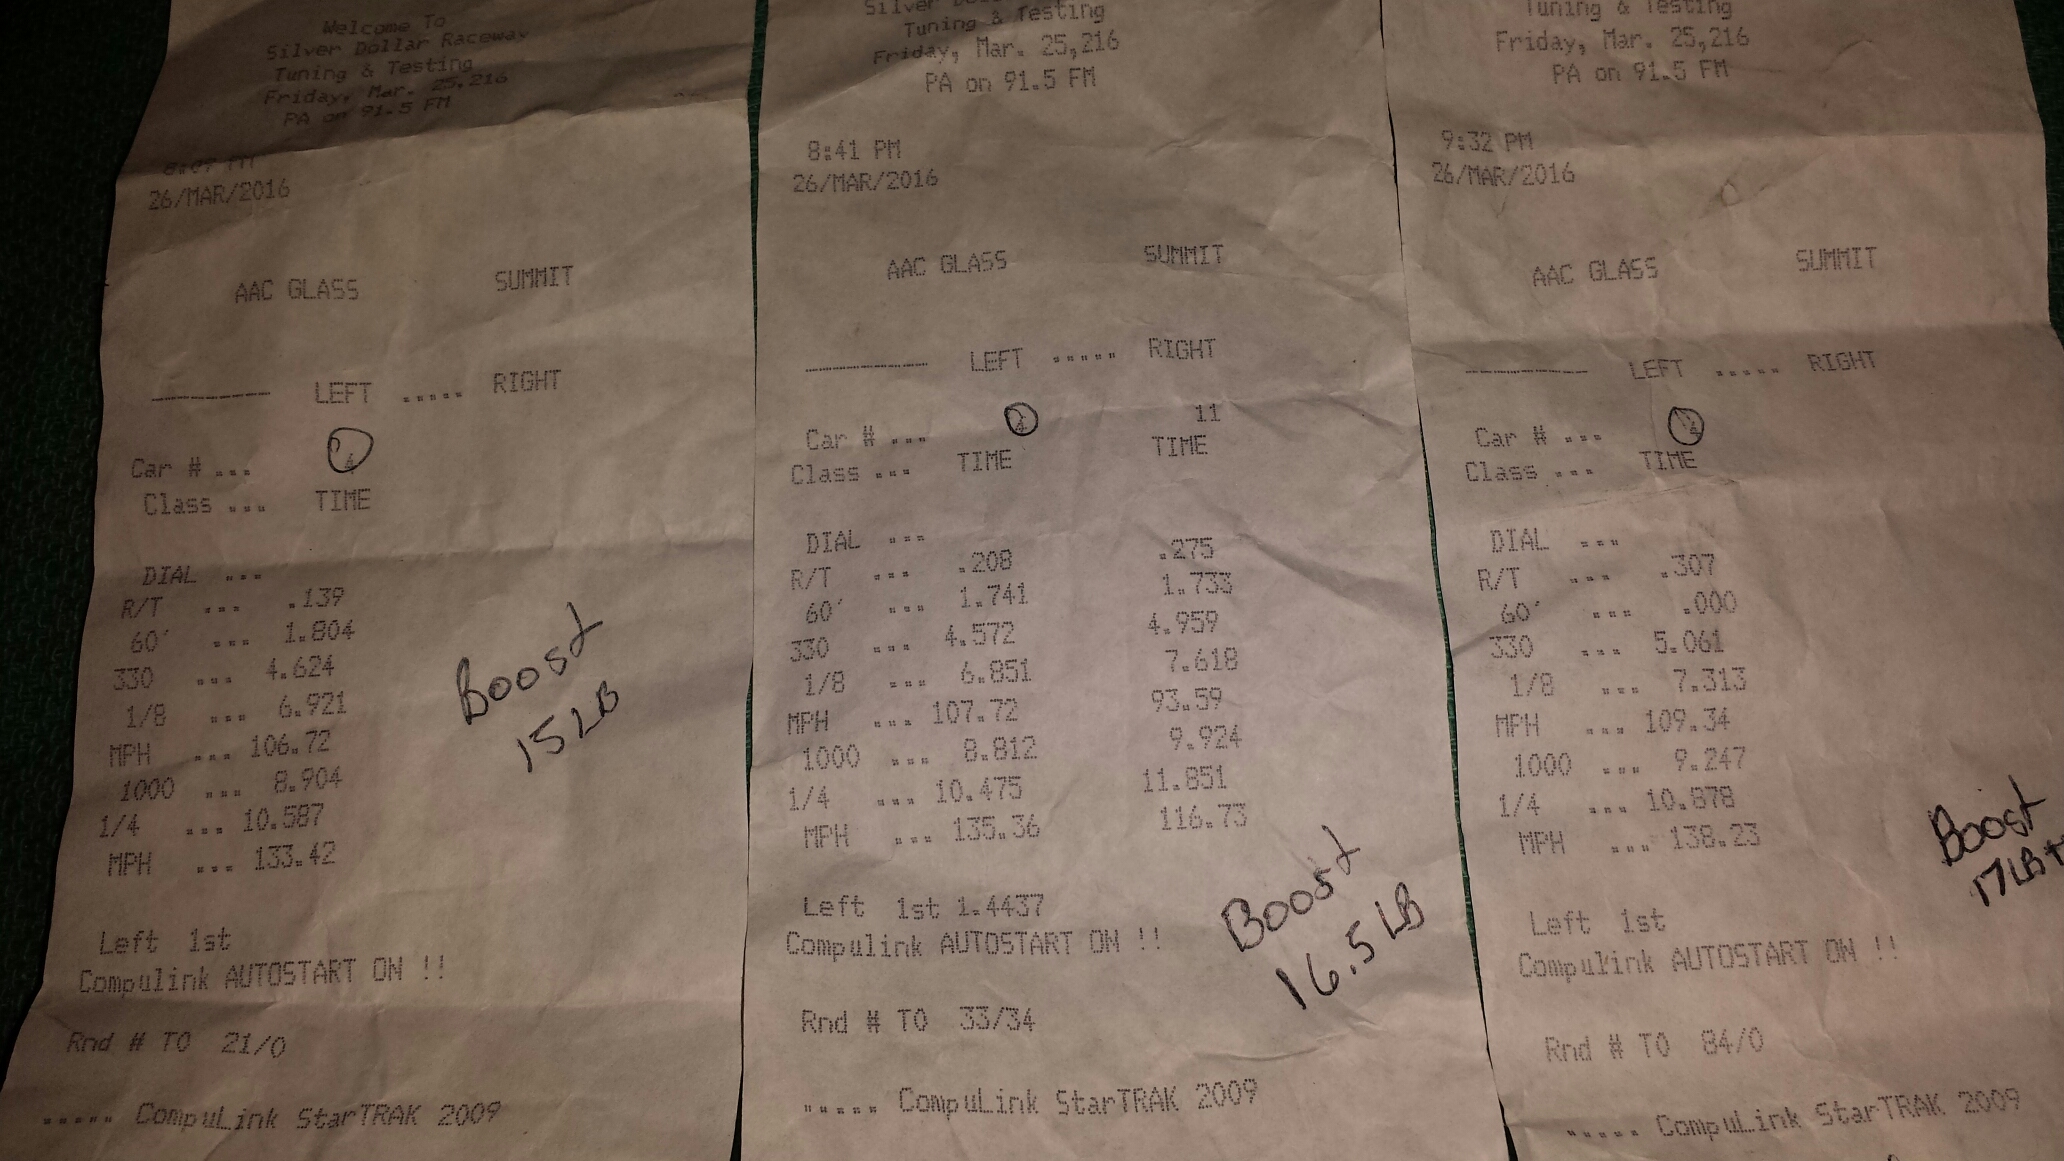 Welcome To
Silver Dollar Raceway
Tuning & Testing
Friday, Mar. 25,216
PA on 91.5 FM
8:07 PM
26/MAR/2016
AAC GLASS SUMMIT
--------- LEFT ..... RIGHT
Car # ...
Class ... TIME
DIAL ...
R/T ... .139
60' ... 1.804
330 ... 4.624
1/8 ... 6.921
MPH ... 106.72
1000 ... 8.904
1/4 ... 10.587
MPH ... 133.42
Boost
15LB
Left 1st
Compulink AUTOSTART ON !!
Rnd # TO 21/0
..... CompuLink StarTRAK 2009
Silver
Tuning & Testing
Friday, Mar. 25,216
PA on 91.5 FM
8:41 PM
26/MAR/2016
AAC GLASS SUMMIT
--------- LEFT ..... RIGHT
Car # ... 11
Class ... TIME TIME
DIAL ...
R/T ... .208 .275
60' ... 1.741 1.733
330 ... 4.572 4.959
1/8 ... 6.851 7.618
MPH ... 107.72 93.59
1000 ... 8.812 9.924
1/4 ... 10.475 11.851
MPH ... 135.36 116.73
Left 1st 1.4437
Compulink AUTOSTART ON !!
Boost
16.5LB
Rnd # TO 33/34
..... CompuLink StarTRAK 2009
Tuning & Testing
Friday, Mar. 25,216
PA on 91.5 FM
9:32 PM
26/MAR/2016
AAC GLASS SUMMIT
--------- LEFT ..... RIGHT
Car # ...
Class ... TIME
DIAL ...
R/T ... .307
60' ... .000
330 ... 5.061
1/8 ... 7.313
MPH ... 109.34
1000 ... 9.247
1/4 ... 10.878
MPH ... 138.23
Boost
17LB+
Left 1st
Compulink AUTOSTART ON !!
Rnd # TO 84/0
..... CompuLink StarTRAK 2009